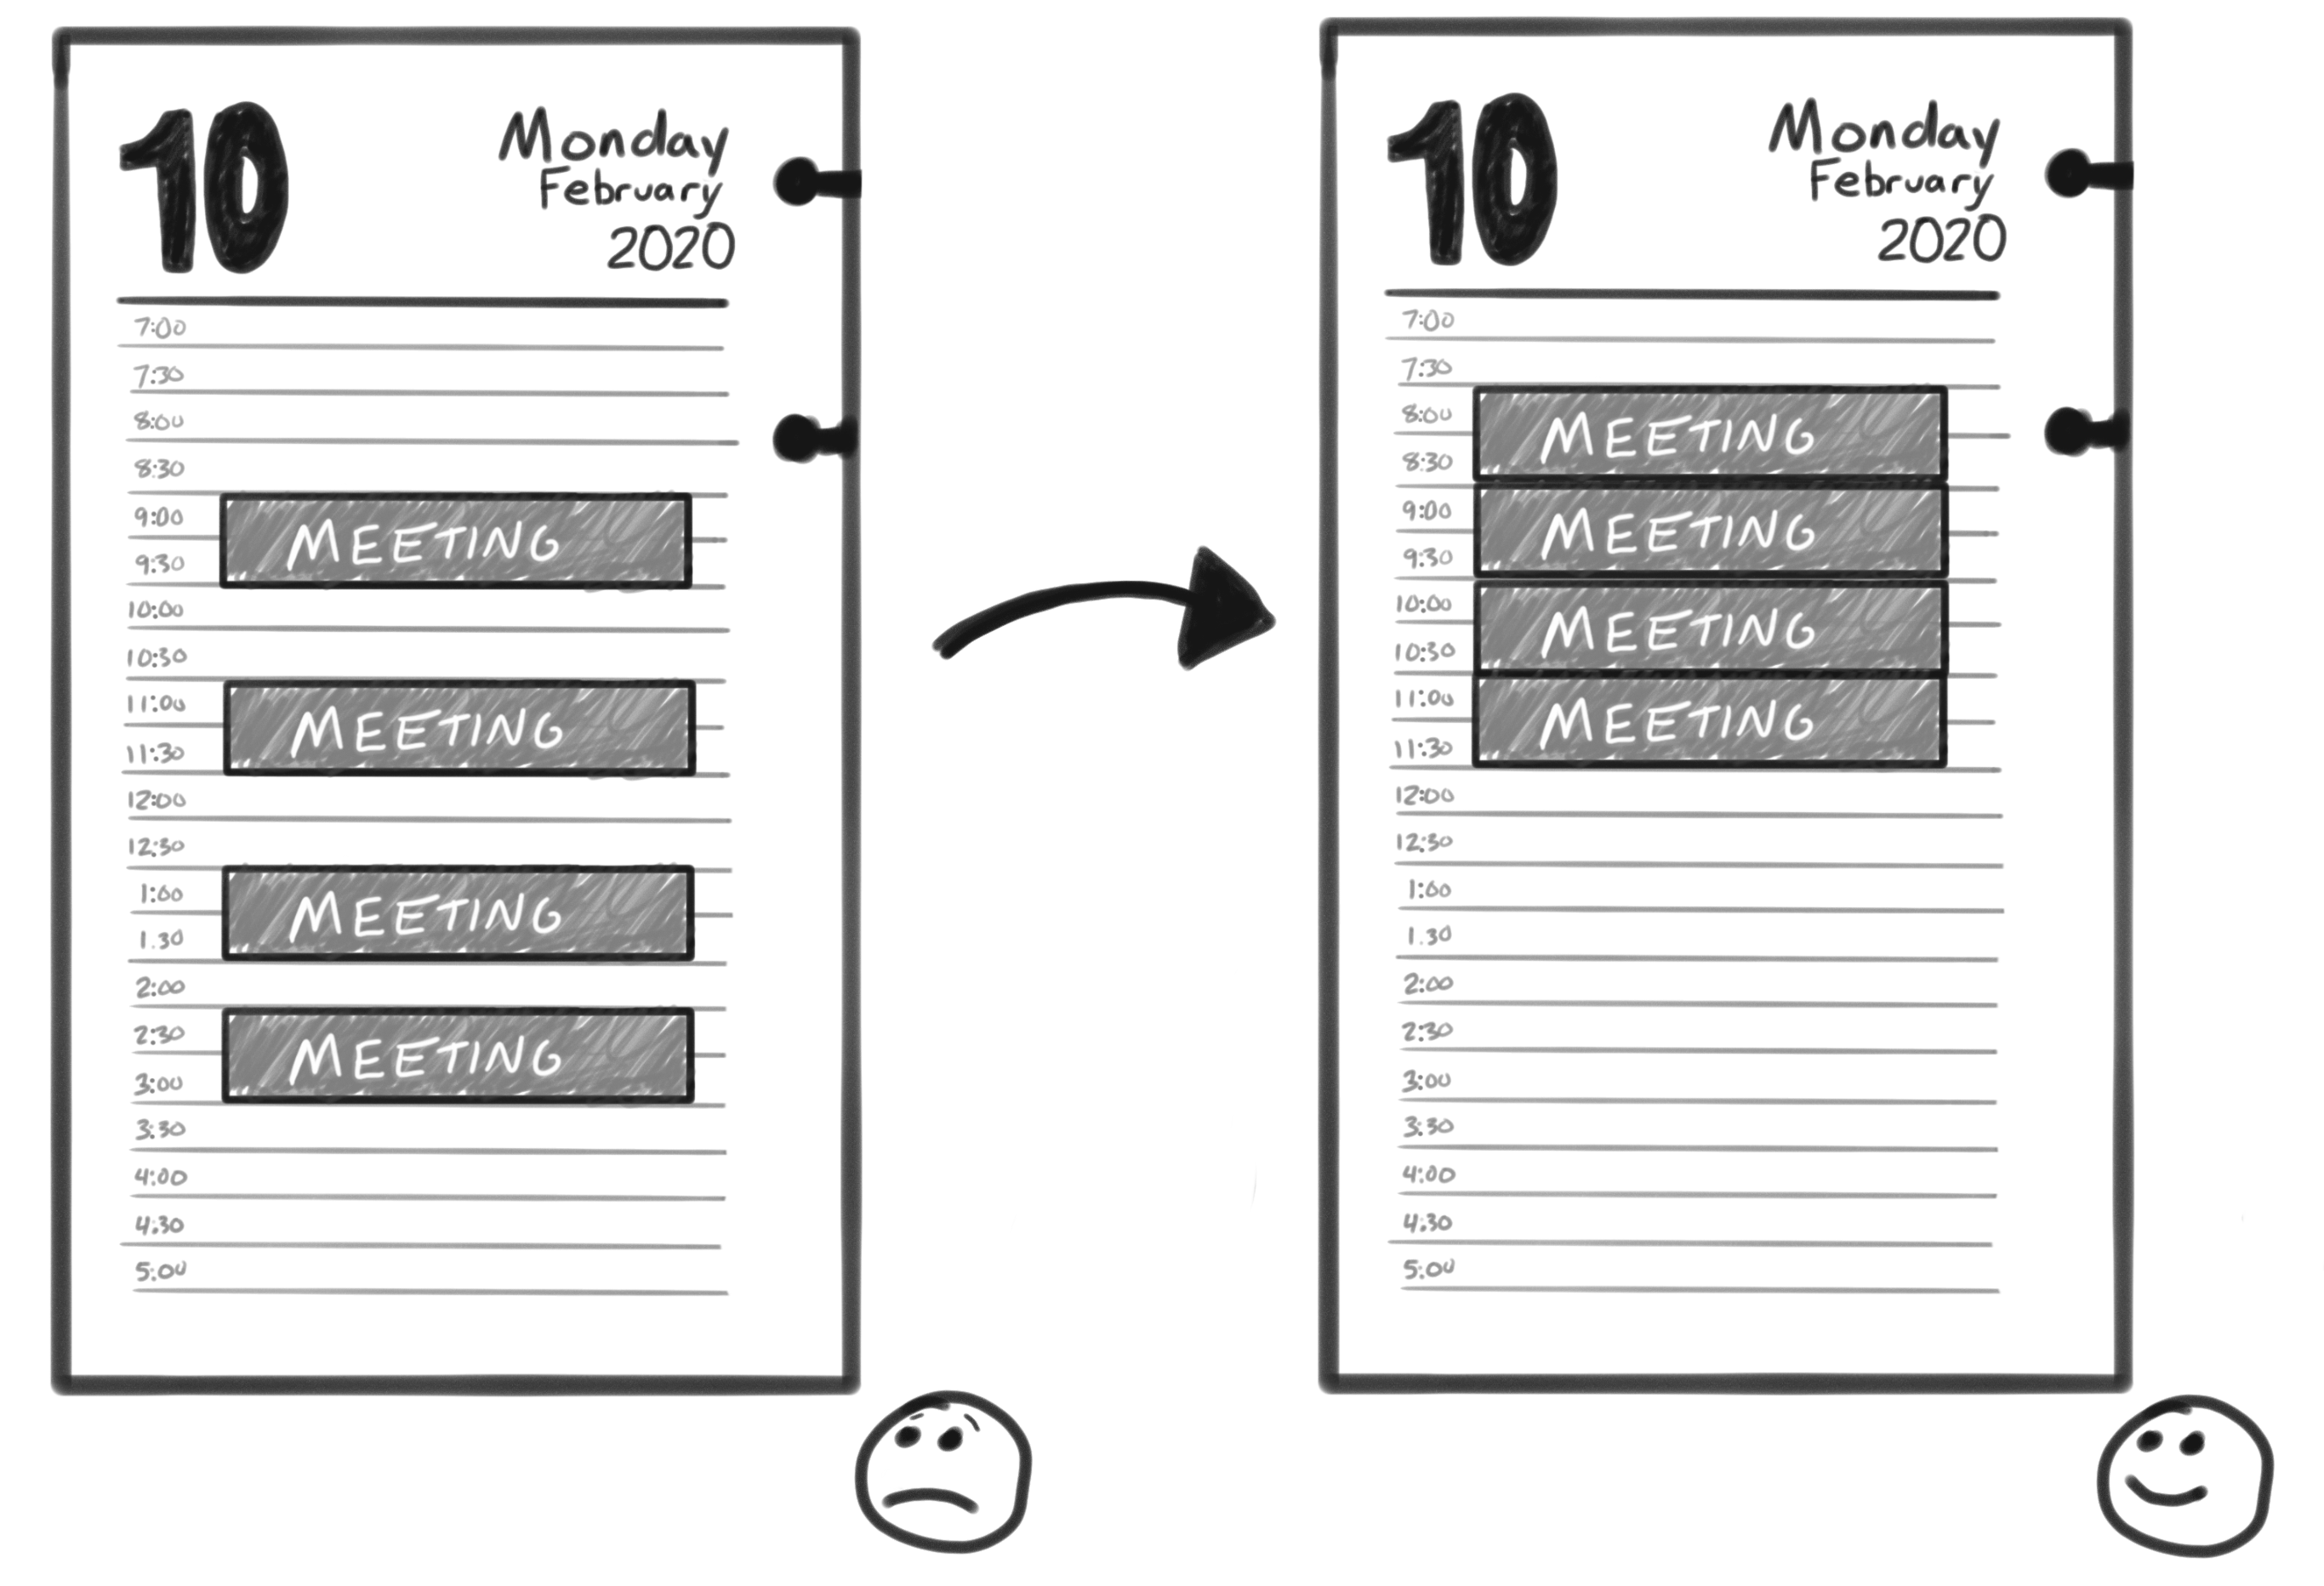 10
Monday
February
2020
7:00
7:30
8:00
8:30
9:00
MEETING
9:30
10:00
10:30
11:00
MEETING
11:30
12:00
12:30
1:00
MEETING
1.30
2:00
2:30
MEETING
3:00
3:30
4:00
4:30
5:00
10
Monday
February
2020
7:00
7:30
8:00
MEETING
8:30
9:00
MEETING
9:30
10:00
MEETING
10:30
11:00
MEETING
11:30
12:00
12:30
1:00
1.30
2:00
2:30
3:00
3:30
4:00
4:30
5:00